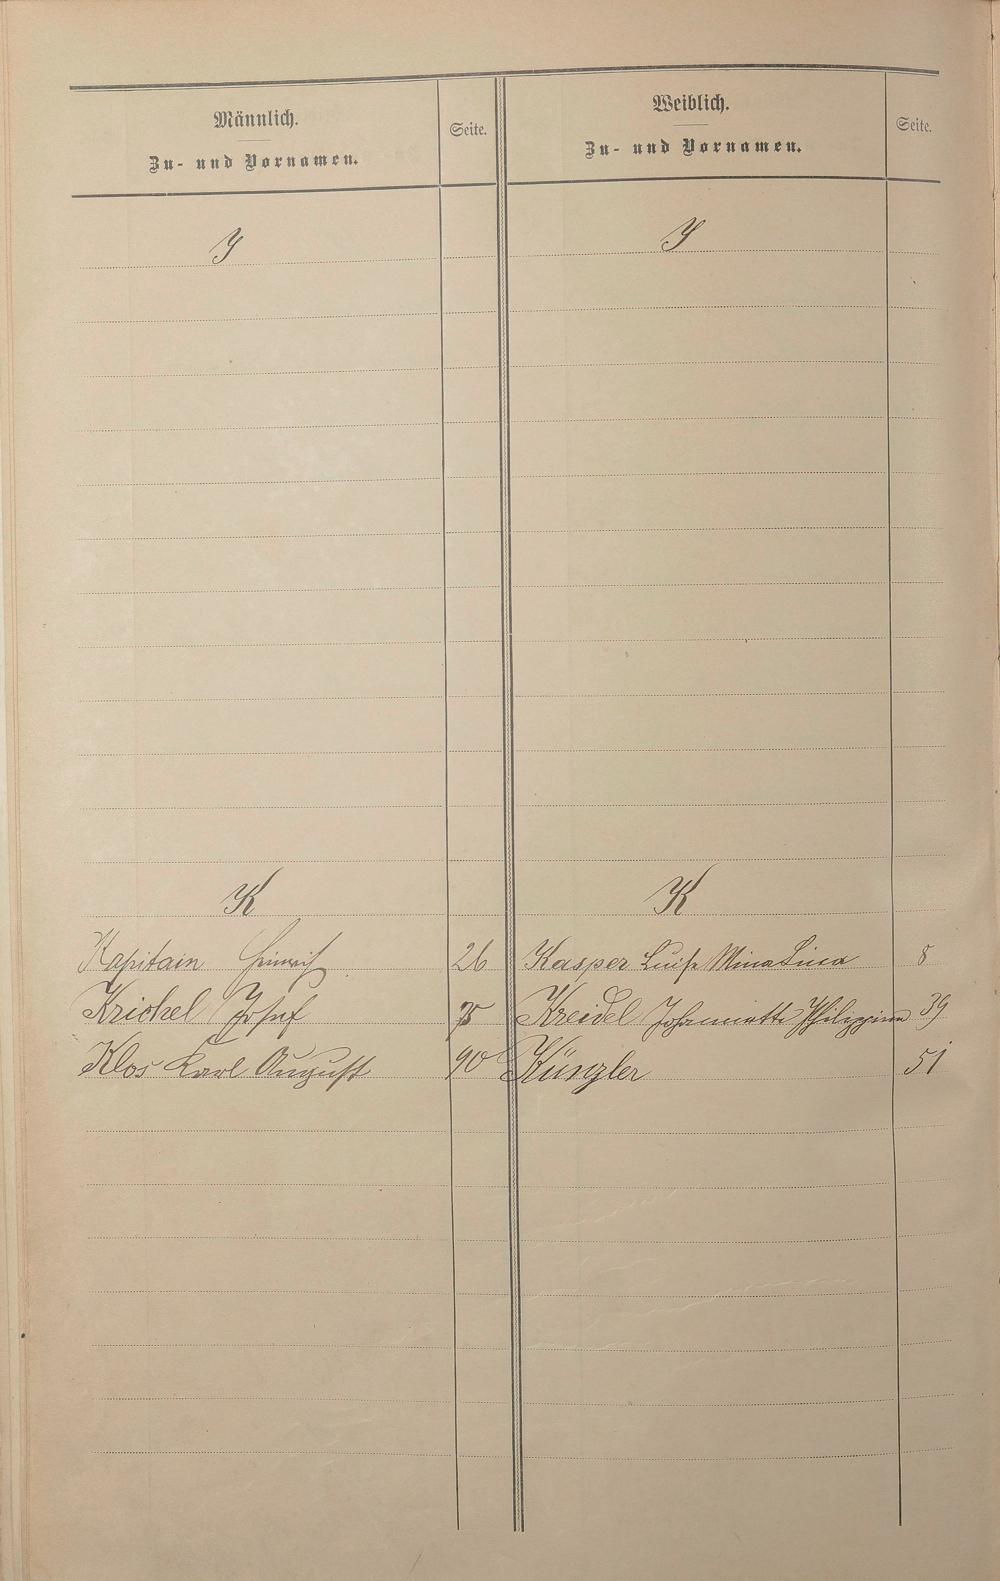 Männlich.
Zu- und Vornamen.
Seite.
Weiblich.
Zu- und Vornamen.
Seite.
J
J
K
K
Kapitain Heinrich 26
Krickel Josef 75
Klos Karl August 90
Kasper Luise Mina Lina 8
Kreidel Johannette Philippine 39
Künzler 51